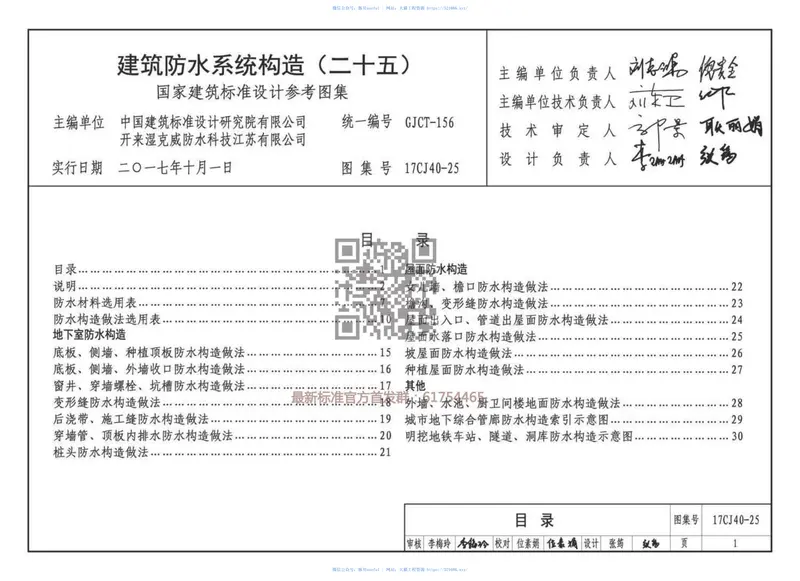 建筑防水系统构造（二十五）
国家建筑标准设计参考图集
主编单位 中国建筑标准设计研究院有限公司 统一编号 GJCT-156
开来湿克威防水科技江苏有限公司
实行日期 二〇一七年十月一日 图集号 17CJ40-25
主编单位负责人
主编单位技术负责人
技术审定人
设计负责人
目 录
目录……1
说明……2
防水材料选用表……7
防水构造做法选用表……10
地下室防水构造
底板、侧墙、种植顶板防水构造做法……15
底板、侧墙、外墙收口防水构造做法……16
窗井、穿墙螺栓、坑槽防水构造做法……17
变形缝防水构造做法……18
后浇带、施工缝防水构造做法……19
穿墙管、顶板内排水防水构造做法……20
桩头防水构造做法……21
屋面防水构造
女儿墙、檐口防水构造做法……22
檐沟、变形缝防水构造做法……23
屋面出入口、管道出屋面防水构造做法……24
屋面水落口防水构造做法……25
坡屋面防水构造做法……26
种植屋面防水构造做法……27
其他
外墙、水池、厨卫间楼地面防水构造做法……28
城市地下综合管廊防水构造索引示意图……29
明挖地铁车站、隧道、洞库防水构造示意图……30
最新标准官方首发群：61754465
目 录 图集号 17CJ40-25
审核 李梅玲 校对 位素娟 设计 张筛 页 1